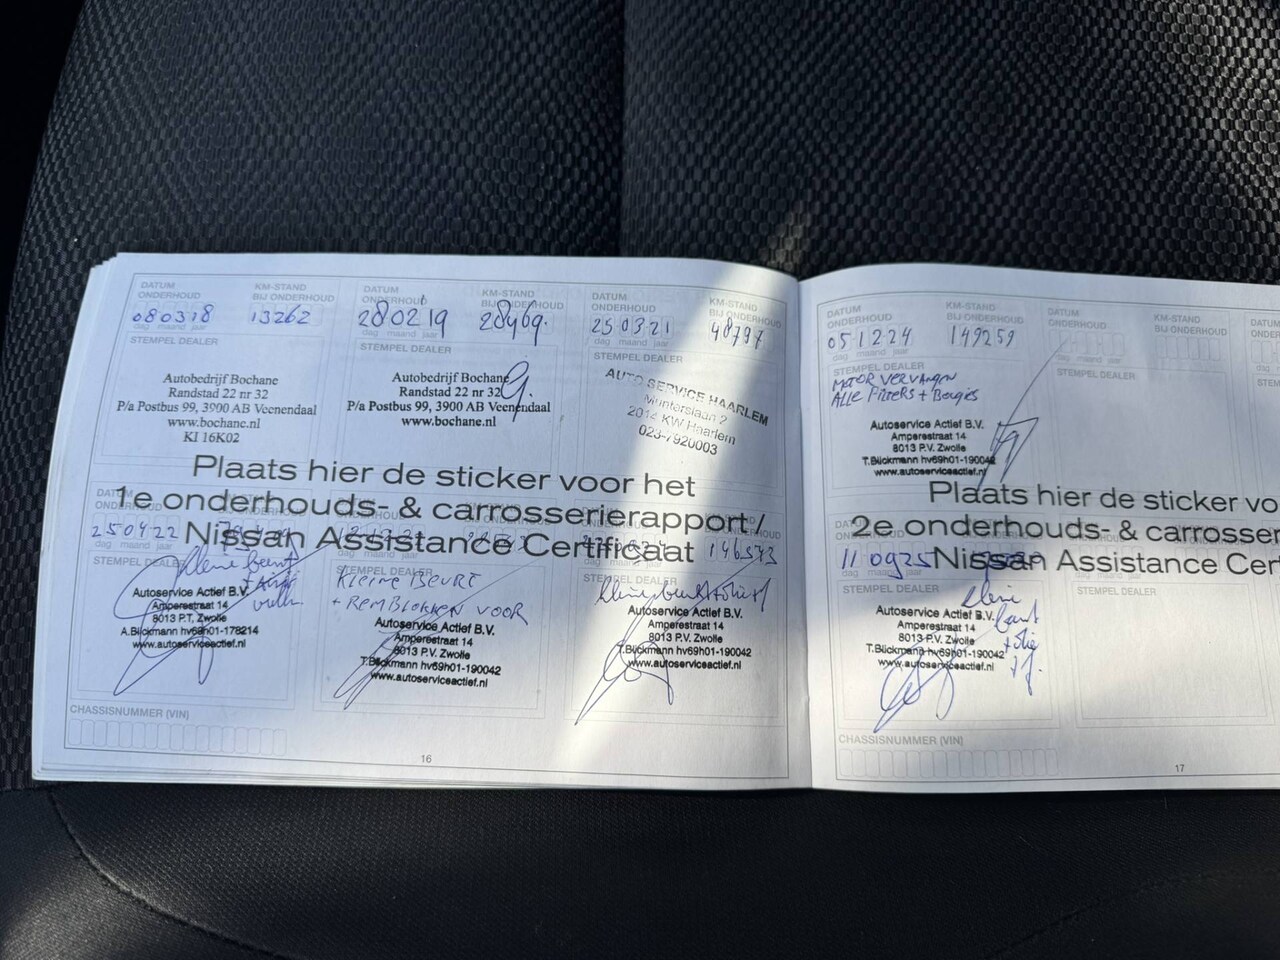 DATUM ONDERHOUD
KM-STAND BIJ ONDERHOUD
080318
13262
dag maand jaar
STEMPEL DEALER
Autobedrijf Bochane
Randstad 22 nr 32
P/a Postbus 99, 3900 AB Veenendaal
www.bochane.nl
KI 16K02
DATUM ONDERHOUD
KM-STAND BIJ ONDERHOUD
280219
28469.
dag maand jaar
STEMPEL DEALER
Autobedrijf Bochane
Randstad 22 nr 32
P/a Postbus 99, 3900 AB Veenendaal
www.bochane.nl
DATUM ONDERHOUD
KM-STAND BIJ ONDERHOUD
250321
48797
dag maand jaar
STEMPEL DEALER
AUTO SERVICE HAARLEM
Munterslaan 2
2014 KW Haarlem
023-7920003
Plaats hier de sticker voor het
1e onderhouds- & carrosserierapport /
Nissan Assistance Certificaat
DATUM ONDERHOUD
250422
dag maand jaar
STEMPEL DEALER
kleine beurt
Autoservice Actief B.V.
Amperestraat 14
8013 P.T, Zwolle
A.Blickmann hv69h01-178214
www.autoserviceactief.nl
KLEINE BEURT
+ REMBLOKKEN VOOR
Autoservice Actief B.V.
Amperestraat 14
8013 P.V. Zwolle
T.Blickmann hv69h01-190042
www.autoserviceactief.nl
146573
STEMPEL DEALER
kleine beurt
Autoservice Actief B.V.
Amperestraat 14
8013 P.V. Zwolle
T.Blickmann hv69h01-190042
www.autoserviceactief.nl
CHASSISNUMMER (VIN)
16
DATUM ONDERHOUD
KM-STAND BIJ ONDERHOUD
051224
149259
dag maand jaar
STEMPEL DEALER
MOTOR VERVANGEN
ALLE FILTERS + Bougies
Autoservice Actief B.V.
Amperestraat 14
8013 P.V. Zwolle
T.Blickmann hv69h01-190042
www.autoserviceactief.nl
DATUM ONDERHOUD
KM-STAND BIJ ONDERHOUD
dag maand jaar
STEMPEL DEALER
Plaats hier de sticker vo
2e onderhouds- & carrosser
Nissan Assistance Cert
DATUM ONDERHOUD
110925
dag maand jaar
STEMPEL DEALER
kleine
beurt
+ olie
Autoservice Actief B.V.
Amperestraat 14
8013 P.V. Zwolle
T.Blickmann hv69h01-190042
www.autoserviceactief.nl
STEMPEL DEALER
CHASSISNUMMER (VIN)
17